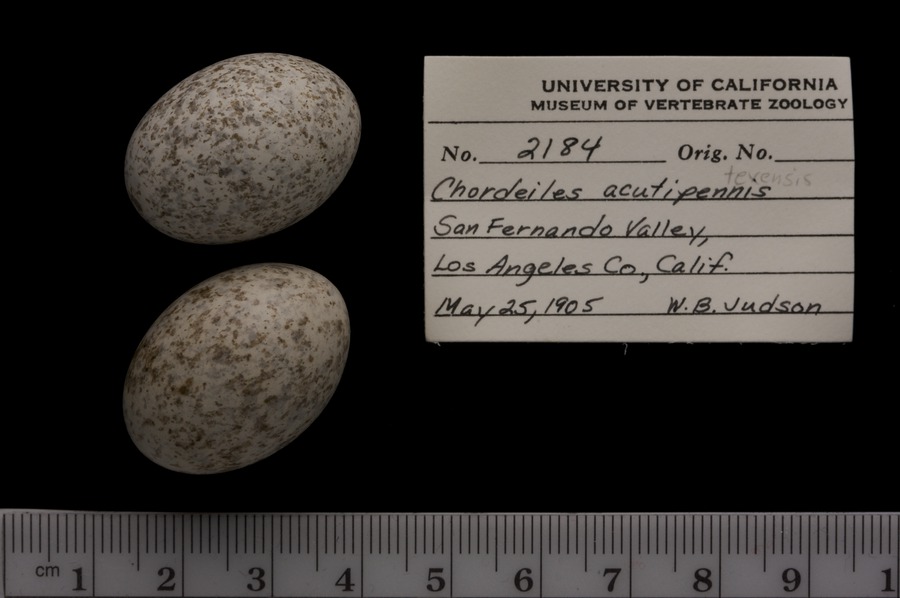 UNIVERSITY OF CALIFORNIA
MUSEUM OF VERTEBRATE ZOOLOGY
No. 2184 Orig. No.
texensis
Chordeiles acutipennis
San Fernando Valley,
Los Angeles Co., Calif.
May 25, 1905 W.B. Judson
cm 1 2 3 4 5 6 7 8 9 1